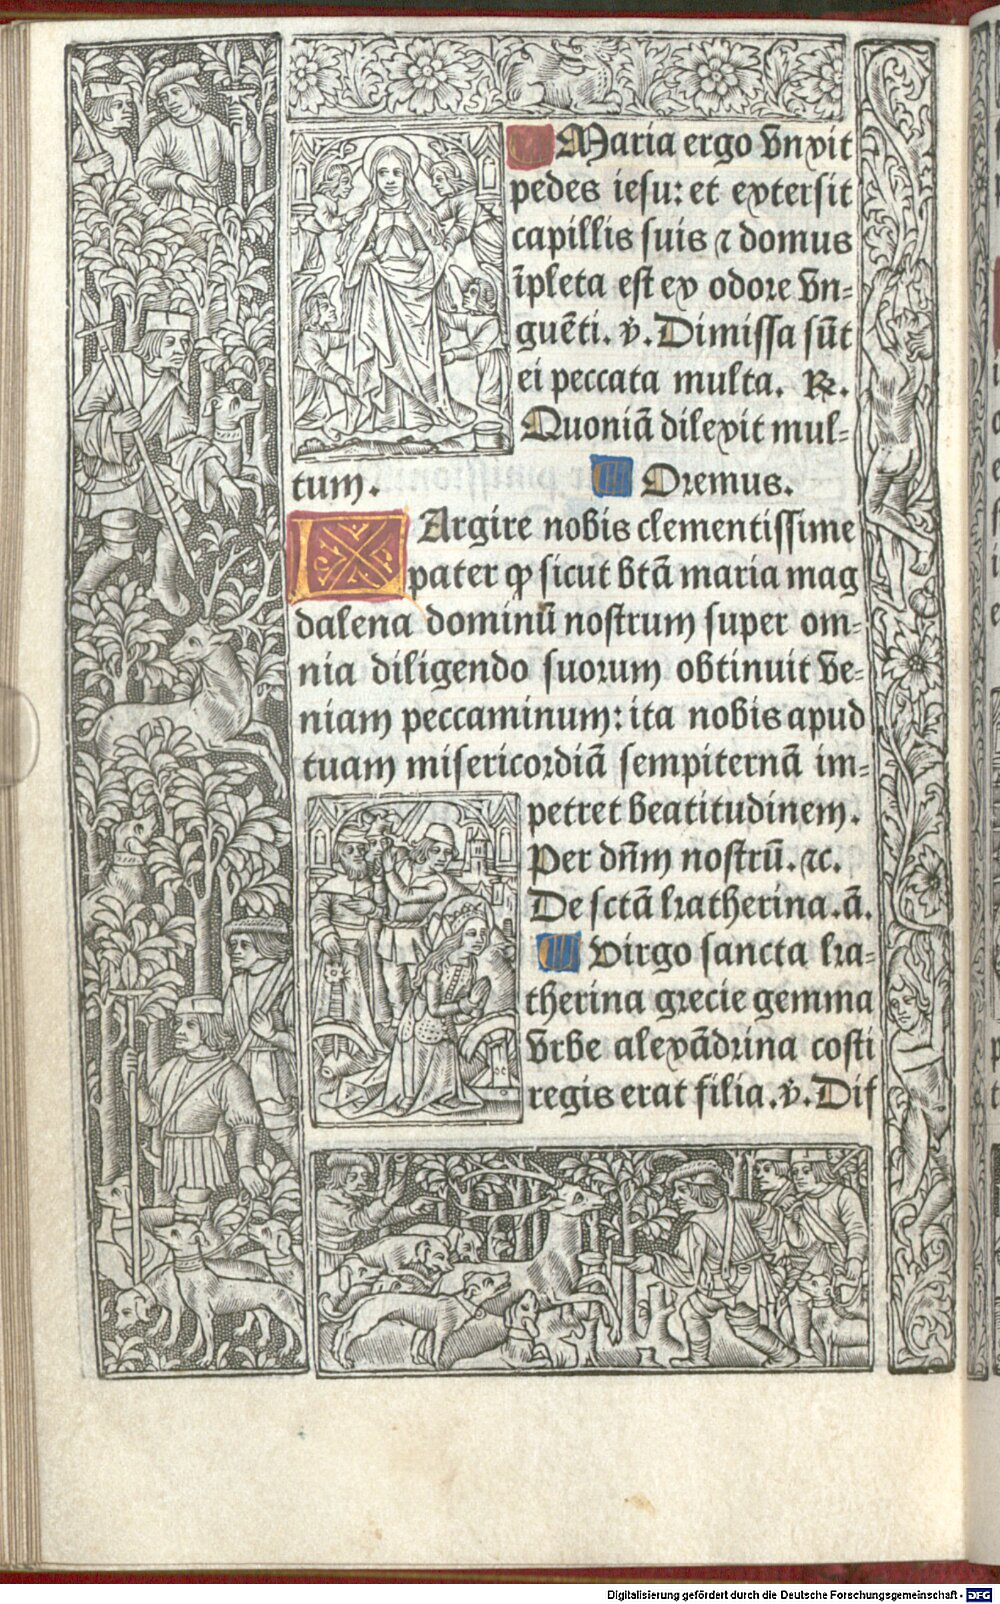 Maria ergo vnxit
pedes iesu: et extersit
capillis suis ⁊ domus
īpleta est ex odore vn-
guēti. v̉. Dimissa sūt
ei peccata multa. ℞.
Quoniā dilexit mul-
tum. Oremus.
LArgire nobis clementissime
pater ꝙ sicut btā maria mag
dalena dominū nostrum super om-
nia diligendo suorum obtinuit ve-
niam peccaminum: ita nobis apud
tuam misericordiā sempiternā im-
petret beatitudinem.
Per dn̄m nostrū. ⁊c.
De sctā katherina. ā.
Virgo sancta ka-
therina grecie gemma
vrbe alexādrina costi
regis erat filia. v̉. Dif
Digitalisierung gefördert durch die Deutsche Forschungsgemeinschaft - DFG